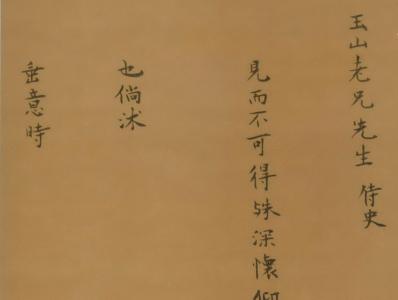 玉山老兄先生 侍史
見而不可得殊深懷
也倘沐
垂意時